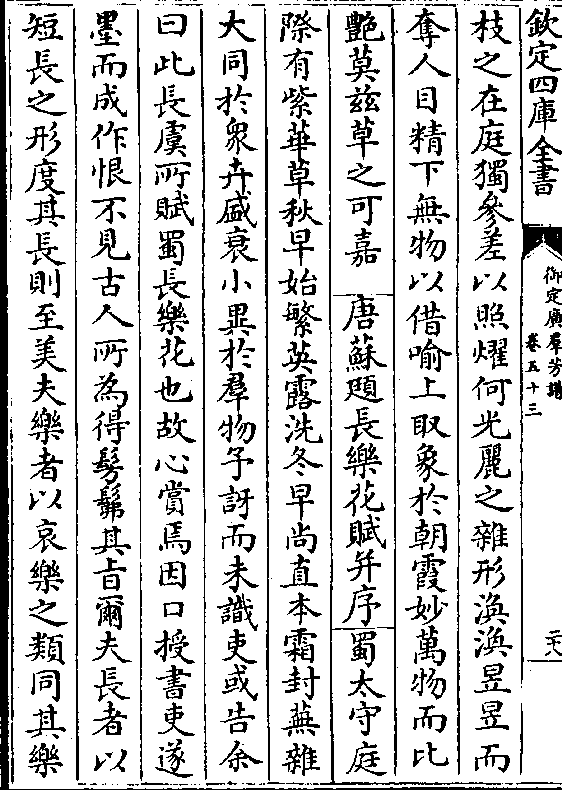 欽定四庫全書
御定廣羣芳譜
卷五十三
二十八
枝之在庭獨參差以照燿何光麗之雜形渙渙昱昱而
奪人目精下無物以借喻上取象於朝霞妙萬物而比
艷莫兹草之可嘉 唐蘇頲長樂花賦并序 蜀太守庭
際有紫華草秋早始繁英露洗冬早尚直本霜封蕪雜
大同於衆卉盛衰小異於羣物予訝而未識吏或告余
曰此長虞所賦蜀長樂花也故心賞焉因口授書吏遂
墨而成作恨不見古人所為得髣髴其旨爾夫長者以
短長之形度其長則至美夫樂者以哀樂之類同其樂